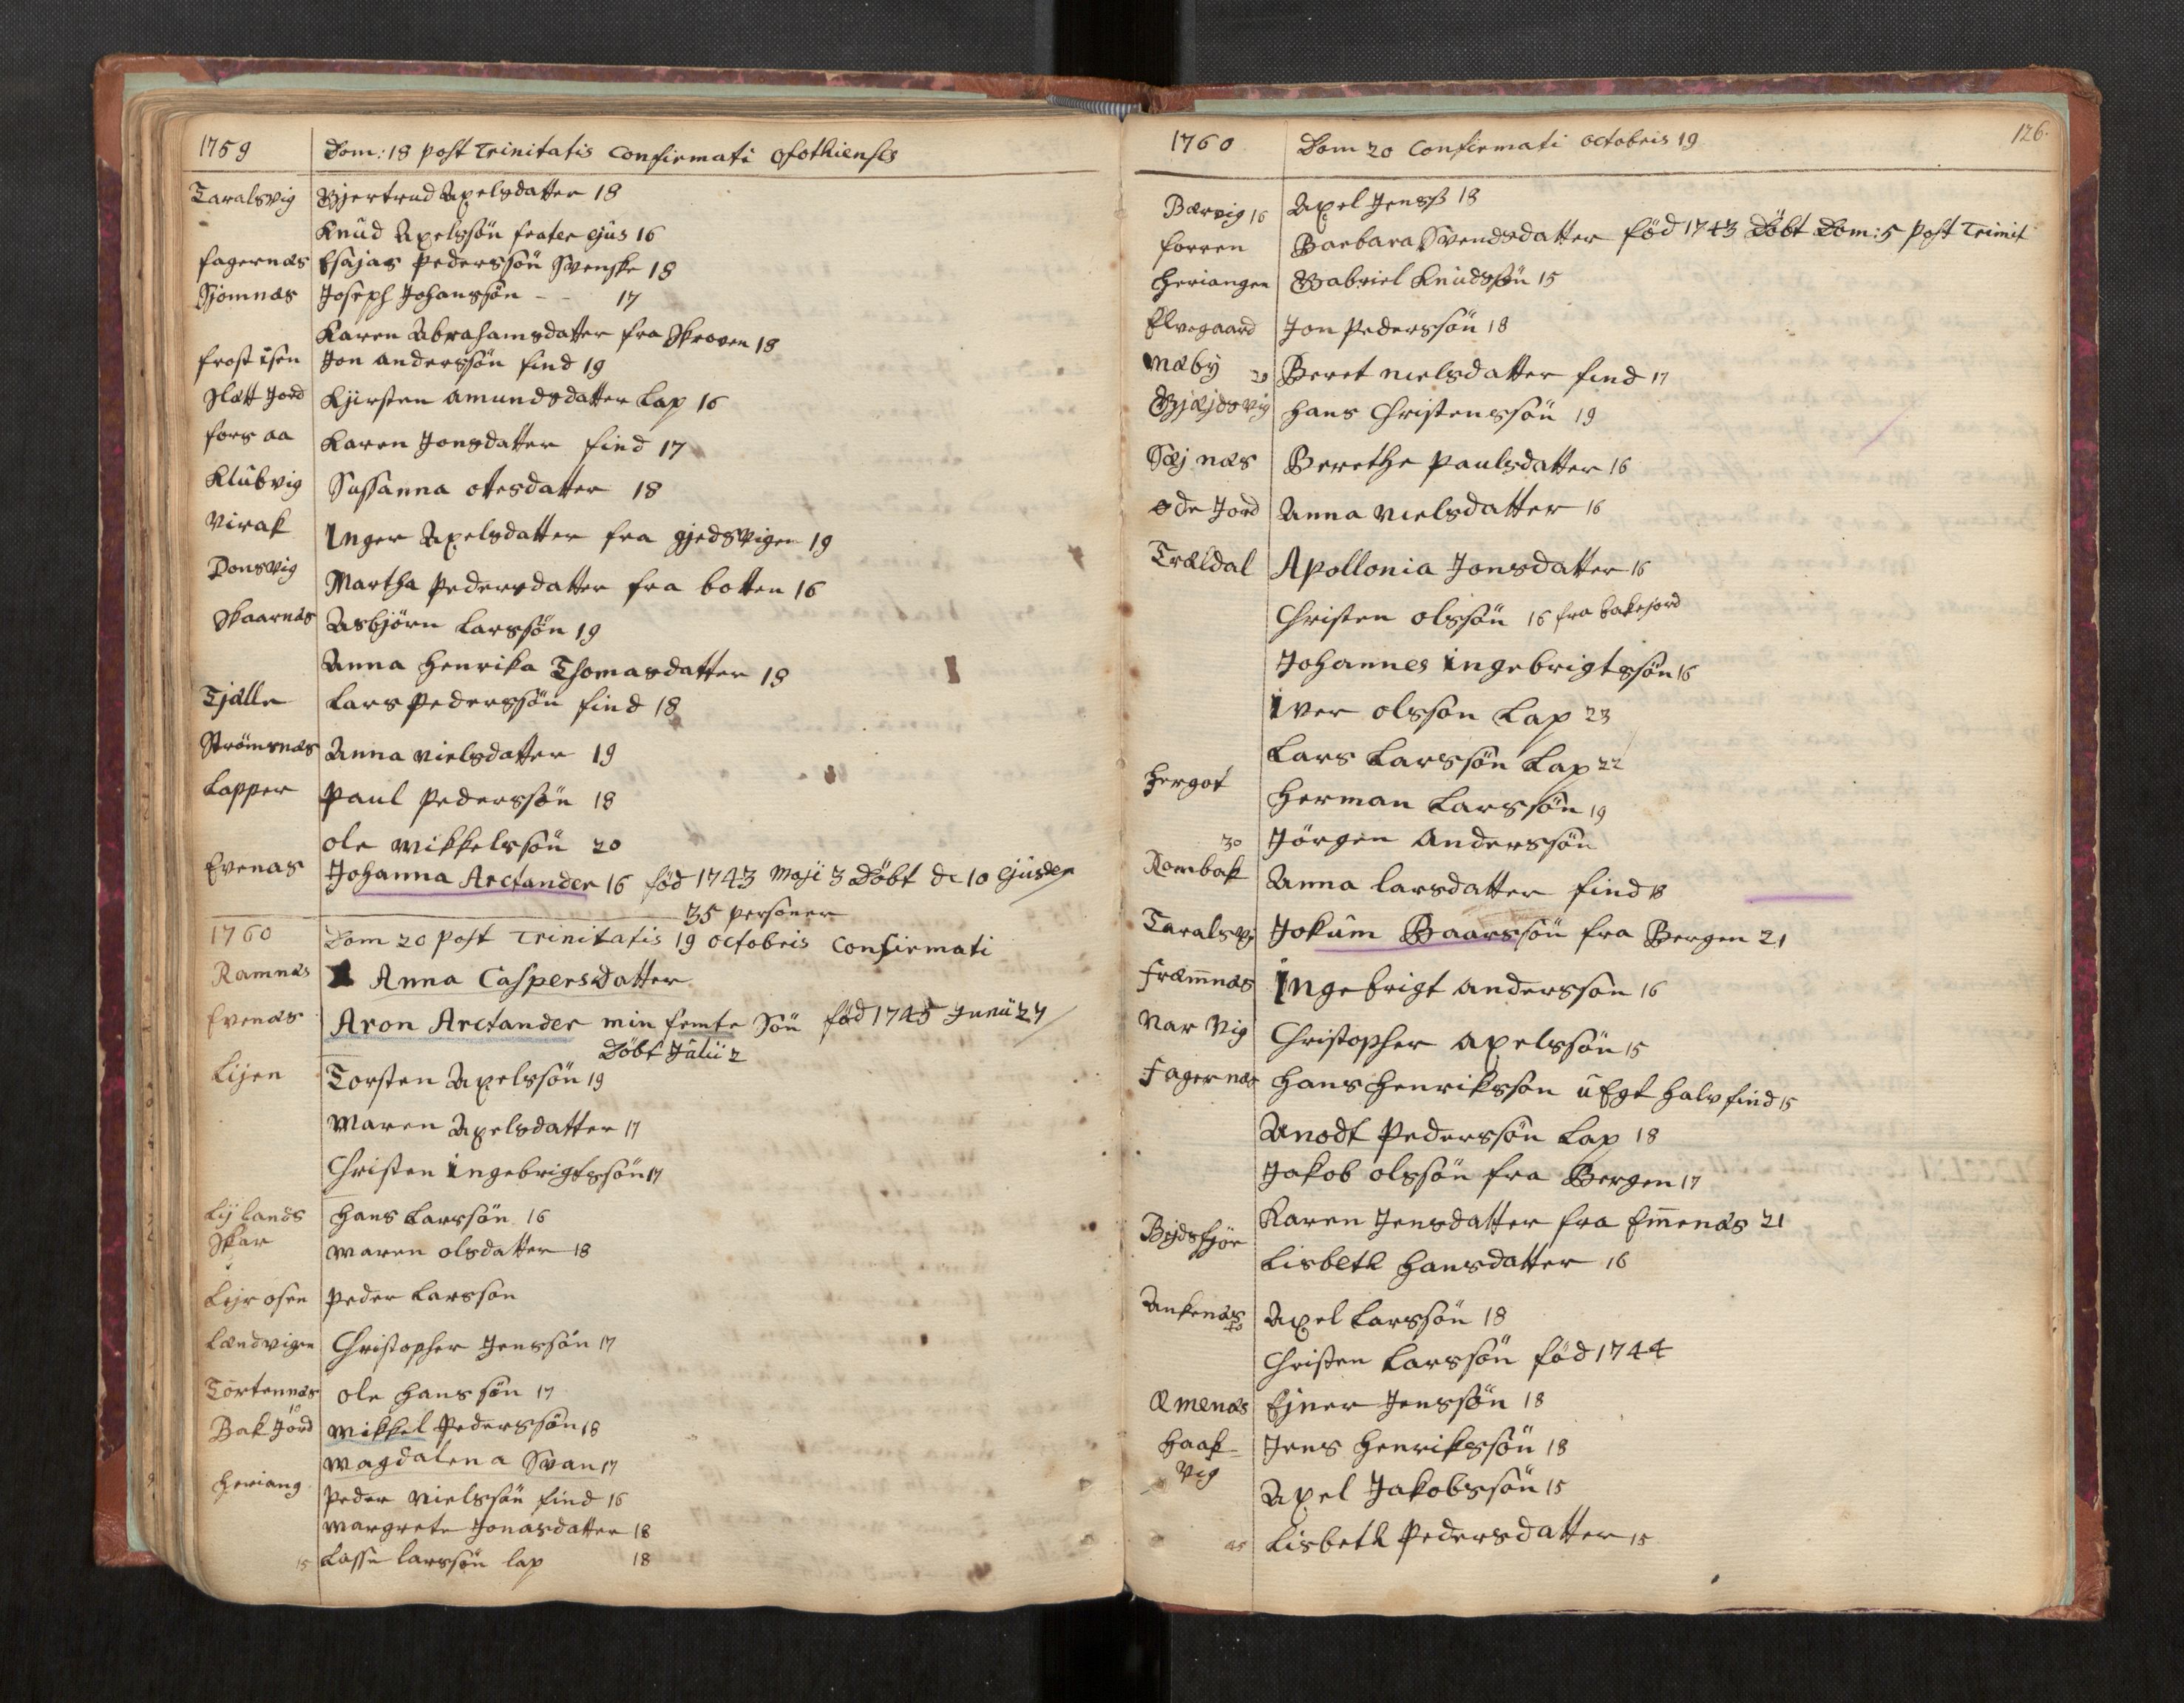 1759 Dom: 18 post Trinitatis Confirmati Ofothienses
Taralsvig Gjertrud Axelsdatter 18
Knud Axelssøn frater ejus 16
fagernæs Esajas Pederssøn Svenske 18
Sjomnæs Joseph Johanssøn - - 17
Karen Abrahamsdatter fra Skroven 18
frostisen Jon anderssøn find 19
Slætt Jord Kjirsten amundsdatter Lap 16
fors aa Karen Jonsdatter find 17
Klubvig Sussanna otesdatter 18
Virak Inger Axelsdatter fra gjedsvigen 19
Ponsvig Martha Pedersdatter fra botten 16
Skaarnæs Asbjørn Larssøn 19
Anna Henrika Thomasdatter 18
Tjælle Lars Pederssøn find 18
Strømsnæs Anna Nielsdatter 19
Lapper Paul Pederssøn 18
ole Mikkelssøn 20
Evenæs Johanna Arctander 16 fød 1743 Maji 3 Døbt de 10 ejusdem
35 personer
1760 Dom 20 post Trinitatis 19 octobris Confirmati
Ramnæs Anna Caspersdatter
Evenæs Aron Arctander min femte Søn fød 1745 Junii 27
Døbt Julii 2
Lijen Torsten Axelssøn 19
Maren Axelsdatter 17
Christen Ingebrigtssøn 17
Lij lands Hans Larssøn 16
Skar Maren olsdatter 18
Lejr osen Peder Larsson
Landvigen Christopher Jenssøn 17
Tortennæs ole Hanssøn 17
10
Bak Jord Mikkel Pederssøn 18
Magdalena Svan 17
Heriang Peder Nielssøn find 16
Margrete Jonasdatter 18
15 Lasse larssøn lap 18
1760 Dom 20 Confirmati octobris 19 126.
Bærvig 16 Axel Jenss 18
forren Barbara Svendsdatter fød 1743 Døbt Dom: 5 post Trinit
Heriangen Gabriel Knudssøn 15
Elvegaard Jon Pederssøn 18
Mæby 20 Beret Nielsdatter find 17
Gjæjdsvig Hans Christenssøn 19
Sæj næs Berethe Paulsdatter 16
øde Jord Anna Nielsdatter 16
Trældal Apollonia Jonsdatter 16
Christen olssøn 16 fra bakejord
Johannes Ingebrigtssøn 16
Iver olsson Lap 23
Lars Larssøn Lap 22
Hergot Herman Larssøn 19
30 Jørgen Anderssøn
Rombak Anna larsdatter find 18
Taralsvi Jokum Baarssøn fra Bergen 21
Fræmnæs Ingebrigt anderssøn 16
Nar Vig Christopher axelssøn 15
Fagernæs Hans Henrikssøn uEgt halv find 15
Anodt Pederssøn Lap 18
Jakob olssøn fra Bergen 17
Karen Jensdatter fra Emenæs 21
Bejdsfjør Lisbeth Hansdatter 16
Ankenæs 40 Axel Larssøn 18
Christen Larssøn fød 1744
Æmenæs Ejner Jenssøn 18
Haak- Jens Henrikssøn 18
Vig Axel Jakobssøn 15
45 Lisbeth Pedersdatter 15